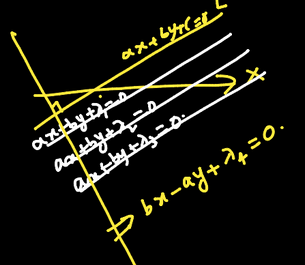 ax+by+c=0 L
ax+by+λ₁=0
ax+by+λ₂=0
ax+by+λ₃=0.
X
bx-ay+λ₄=0.